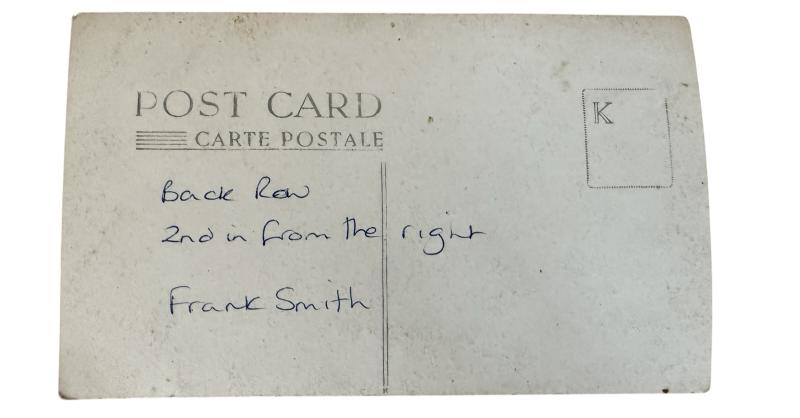 POST CARD
CARTE POSTALE
K
Back Row
2nd in from the right
Frank Smith